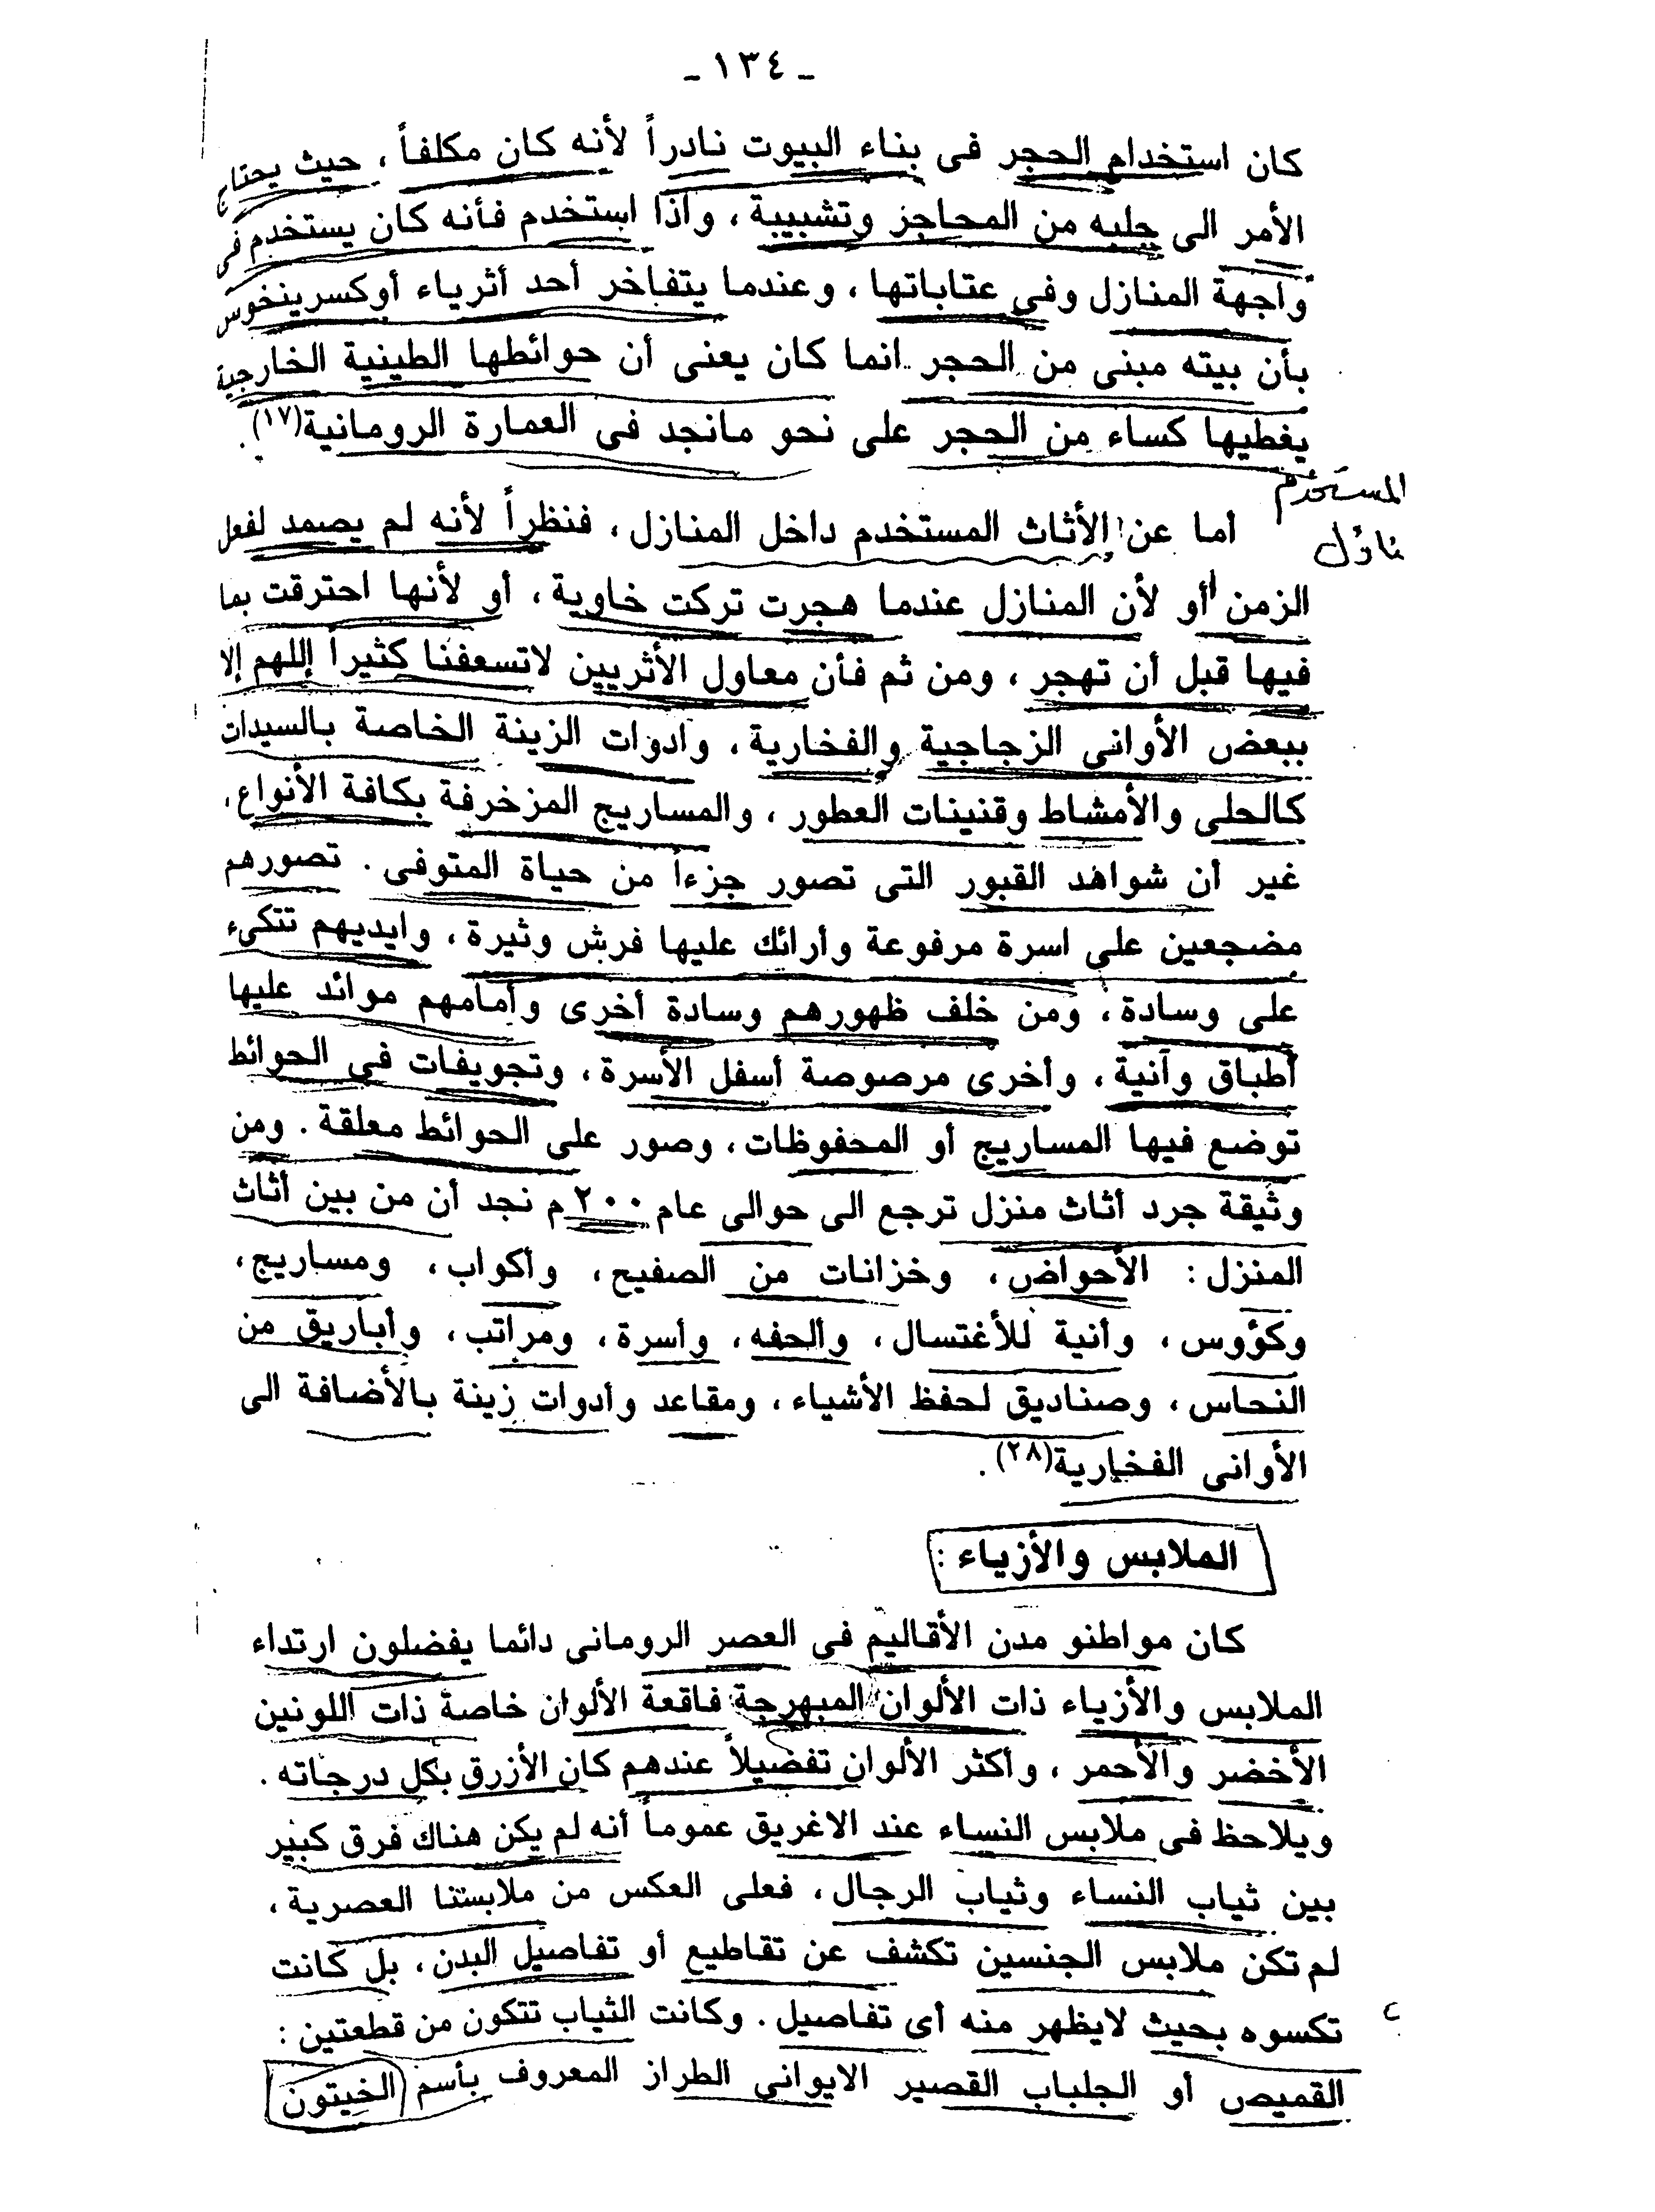 - ١٣٤ -
كان استخدام الحجر فى بناء البيوت نادراً لأنه كان مكلفاً ، حيث يحتاج
الأمر الى جلبه من المحاجز وتشبيبة ، واذا استخدم فأنه كان يستخدم فى
واجهة المنازل وفى عتاباتها ، وعندما يتفاخر أحد أثرياء أوكسرينخوس
بأن بيته مبنى من الحجر انما كان يعنى أن حوائطها الطينية الخارجية
يغطيها كساء من الحجر على نحو مانجد فى العمارة الرومانية(١٧) .
المستخدم
أما عن الأثاث المستخدم داخل المنازل ، فنظراً لأنه لم يصمد لفعل
الزمن أو لأن المنازل عندما هجرت تركت خاوية ، أو لأنها احترقت بما
فيها قبل أن تهجر ، ومن ثم فأن معاول الأثريين لاتسعفنا كثيراً إللهم إلا
ببعض الأوانى الزجاجية والفخارية ، وادوات الزينة الخاصة بالسيدات
كالحلى والأمشاط وقنينات العطور ، والمساريج المزخرفة بكافة الأنواع ،
غير أن شواهد القبور التى تصور جزءاً من حياة المتوفى . تصورهم
مضجعين على اسرة مرفوعة وأرائك عليها فرش وثيرة ، وايديهم تتكىء
على وسادة ، ومن خلف ظهورهم وسادة أخرى وأمامهم موائد عليها
أطباق وآنية ، وأخرى مرصوصة أسفل الأسرة ، وتجويفات فى الحوائط
توضع فيها المساريج أو المحفوظات ، وصور على الحوائط معلقة . ومن
وثيقة جرد أثاث منزل ترجع الى حوالى عام ٢٠٠م نجد أن من بين أثاث
المنزل : الأحواض ، وخزانات من الصفيح ، وأكواب ، ومساريج ،
وكؤوس ، وأنية للأغتسال ، وألحفه ، وأسرة ، ومراتب ، وأباريق من
النحاس ، وصناديق لحفظ الأشياء ، ومقاعد وأدوات زينة بالأضافة الى
الأوانى الفخارية(٢٨) .
الملابس والأزياء :
كان مواطنو مدن الأقاليم فى العصر الرومانى دائما يفضلون ارتداء
الملابس والأزياء ذات الألوان المبهرجة فاقعة الألوان خاصة ذات اللونين
الأخضر والأحمر ، وأكثر الألوان تفضيلاً عندهم كان الأزرق بكل درجاته .
ويلاحظ فى ملابس النساء عند الاغريق عموماً أنه لم يكن هناك فرق كبير
بين ثياب النساء وثياب الرجال ، فعلى العكس من ملابستنا العصرية ،
لم تكن ملابس الجنسين تكشف عن تقاطيع أو تفاصيل البدن ، بل كانت
تكسوه بحيث لايظهر منه أى تفاصيل . وكانت الثياب تتكون من قطعتين :
القميص أو الجلباب القصير الايوانى الطراز المعروف بأسم الخيتون